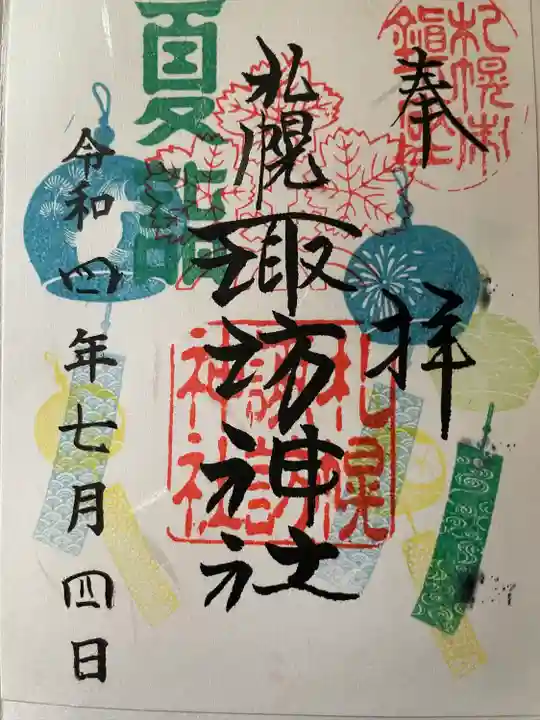 奉拝
札幌諏訪神社
令和四年七月四日
夏詣
札幌諏訪神社